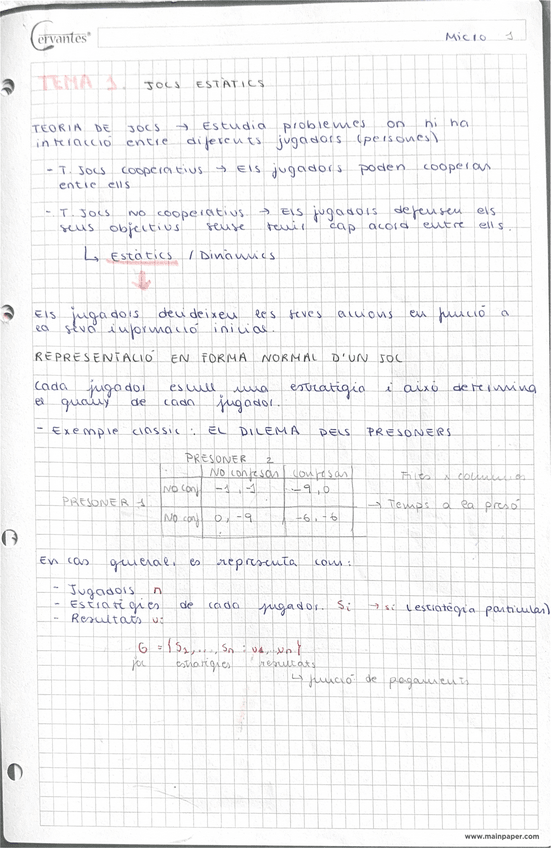 Cervantes®
Micro 1
TEMA 1. JOCS ESTÀTICS
TEORIA DE JOCS → Estudia problemes on hi ha
interacció entre diferents jugadors (persones)
- T. JOCS COOPERATIUS → Els jugadors poden cooperar
entre ells
- T. JOCS NO COOPERATIUS → Els jugadors defensen els
seus objectius sense tenir cap acord entre ells.
↳ Estàtics / Dinàmics
↓
Els jugadors les seves accions en funció a
la seva informació inicial.
REPRESENTACIÓ EN FORMA NORMAL D'UN JOC
Cada jugador escull una estratègia i això determina
el guany de cada jugador.
- Exemple clàssic: EL DILEMA DELS PRESONERS
PRESONER 2
NO confesar confesar
NO conf -1, -1 -9, 0
PRESONER 1 → Temps a la presó
NO conf 0, -9 -6, -6
En cas general, es representa com:
- Jugadors n
- Estratègies de cada jugador. Si → si (estratègia particular)
- Resultats ui
joc estratègies resultats
↳ funció de pagaments
www.mainpaper.com